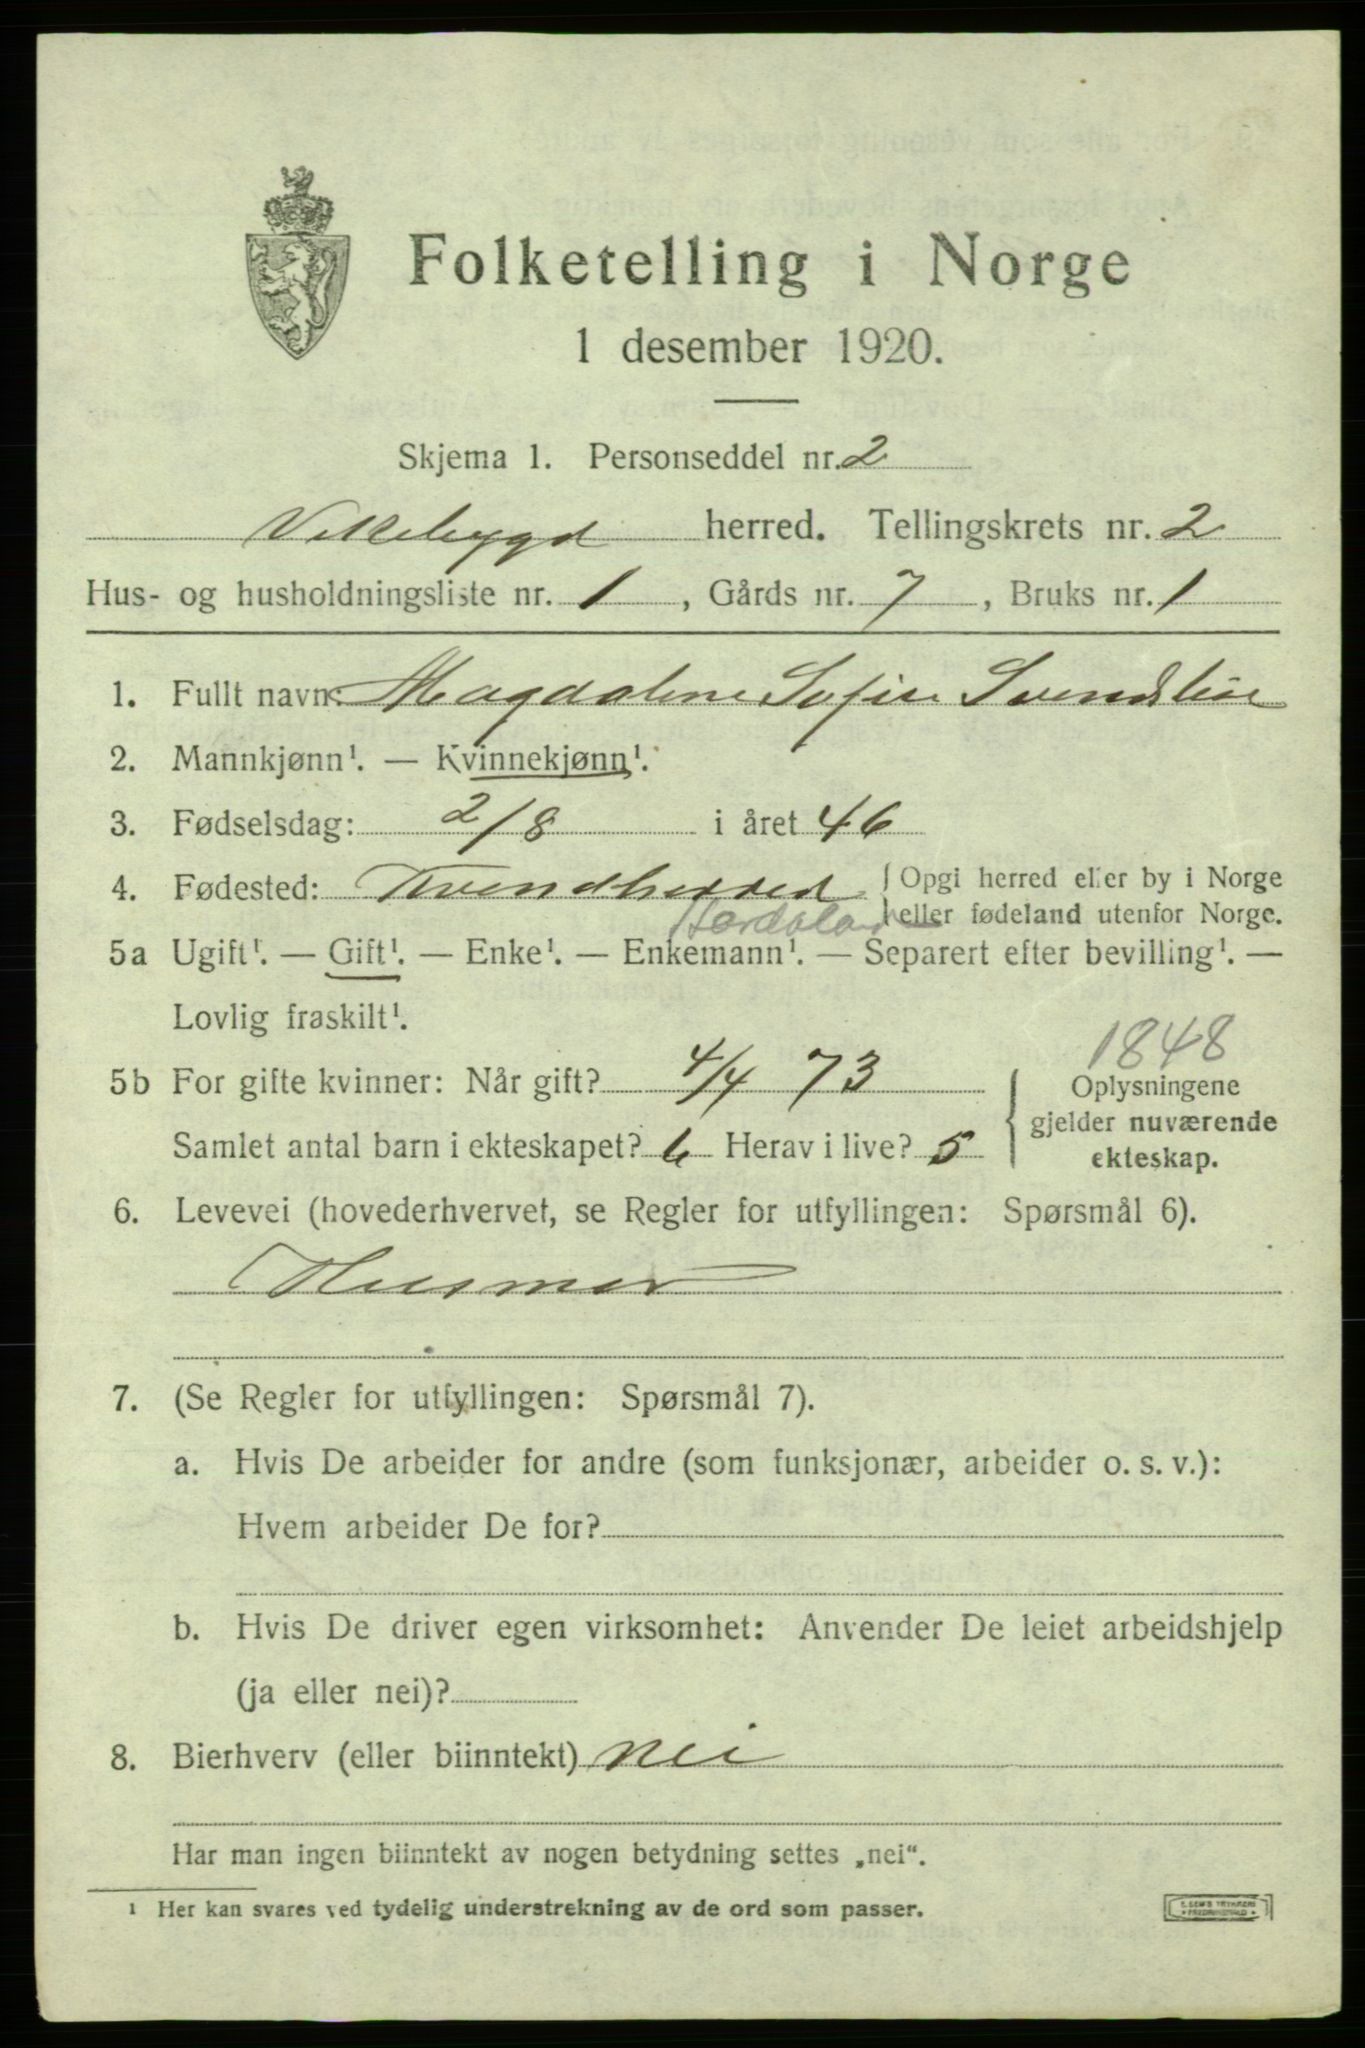 Folketelling i Norge
1 desember 1920.
Skjema 1. Personseddel nr. 2
Vikebygd herred. Tellingskrets nr. 2
Hus- og husholdningsliste nr. 1, Gårds nr. 7, Bruks nr. 1
1. Fullt navn: Magdalene Sofie
2. Mannkjønn¹. — Kvinnekjønn¹.
3. Fødselsdag: 2/8 i året 46
4. Fødested: Kvindherred {Opgi herred eller by i Norge
eller fødeland utenfor Norge.
Hordaland
5a Ugift¹. — Gift¹. — Enke¹. — Enkemann¹. — Separert efter bevilling¹. —
Lovlig fraskilt¹.
1848
5b For gifte kvinner: Når gift? 4/4 73 {Oplysningene
gjelder nuværende
Samlet antal barn i ekteskapet? 6 Herav i live? 5
ekteskap.
6. Levevei (hovederhvervet, se Regler for utfyllingen: Spørsmål 6).
Husmor
7. (Se Regler for utfyllingen: Spørsmål 7).
a. Hvis De arbeider for andre (som funksjonær, arbeider o. s. v.):
Hvem arbeider De for?
b. Hvis De driver egen virksomhet: Anvender De leiet arbeidshjelp
(ja eller nei)?
8. Bierhverv (eller biinntekt) nei
Har man ingen biinntekt av nogen betydning settes „nei“.
¹ Her kan svares ved tydelig understrekning av de ord som passer.